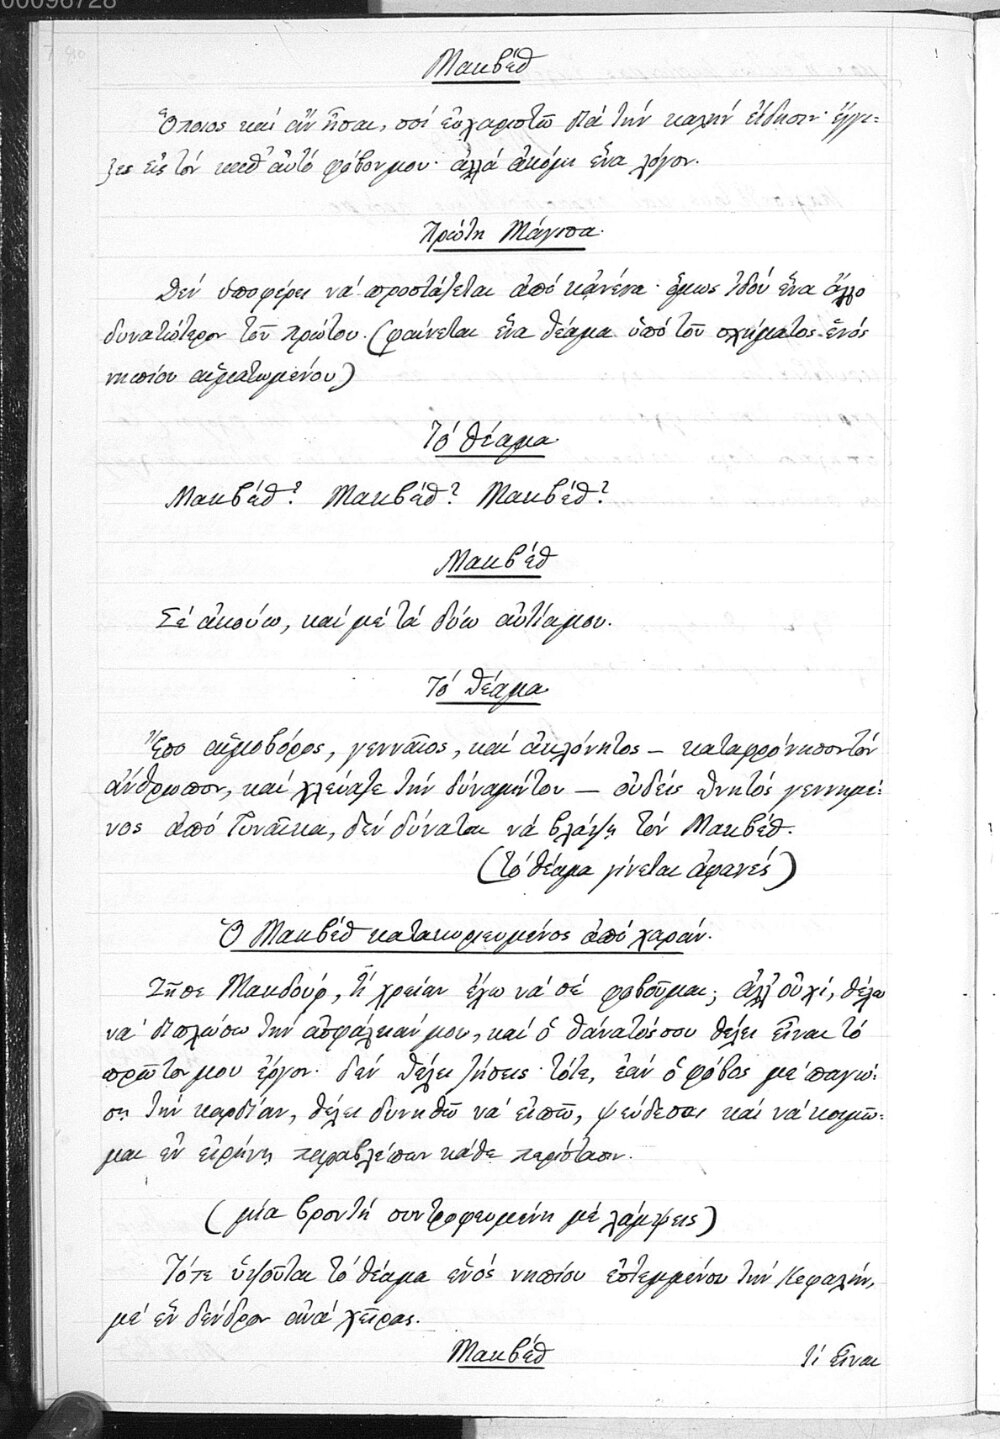 00096728
Μακβέθ
Ὅποιος καί ἄν ἦσαι, σοί εὐχαριστῶ διά τήν καλήν εἴδησιν· ἔγγι-
ξες εἰς τόν καθ' αὐτό φόβον μου· ἀλλά ἀκόμη ἕνα λόγον.
Πρώτη Μάγισσα.
Δέν ὑποφέρει νά προστάζεται ἀπό κᾀνένα· ὅμως ἰδού ἕνα ἄλλο
δυνατώτερον τοῦ πρώτου. (φαίνεται ἕνα θέαμα ὑπό τοῦ σχήματος ἑνός
νηπίου αἱματωμένου)
Τό θέαμα.
Μακβέθ? Μακβέθ? Μακβέθ?
Μακβέθ
Σέ ἀκούω, καί μέ τά δύω αὐτία μου.
Τό θέαμα.
Ἔσο αἱμοβόρος, γενναῖος, καί ἀκλόνητος — καταφρόνησον τόν
ἄνθρωπον, καί χλεύαζε τήν δύναμήν του — οὐδείς θνητός γεννημέ-
νος ἀπό Γυναῖκα, δέν δύναται νά βλάψῃ τόν Μακβέθ.
(τό θέαμα γίνεται ἀφανές)
Ὁ Μακβέθ κατακυριευμένος ἀπό χαράν.
Ζῆσε Μακδούφ, τί χρείαν ἔχω νά σέ φοβοῦμαι; ἀλλ' οὐχί, θέλω
νά διπλώσω τήν ἀσφάλειάν μου, καί ὁ θάνατός σου θέλει εἶναι τό
πρῶτον μου ἔργον· δέν θέλει ζήσεις· τότε, ἐάν ὁ φόβος μέ παγώ-
σῃ τήν καρδίαν, θέλει δυνηθῶ νά εἰπῶ, ψεύδεσαι καί νά κοιμῶ-
μαι ἐν εἰρήνῃ παραβλέπων κάθε περίστασιν.
(μία βροντή συντροφευμένη μέ λάμψεις)
Τότε ὑψοῦται τό θέαμα ἑνός νηπίου ἐστεμμένου τήν Κεφαλήν,
μέ ἕν δένδρον ἀνά χεῖρας.
Μακβέθ
Τί εἶναι